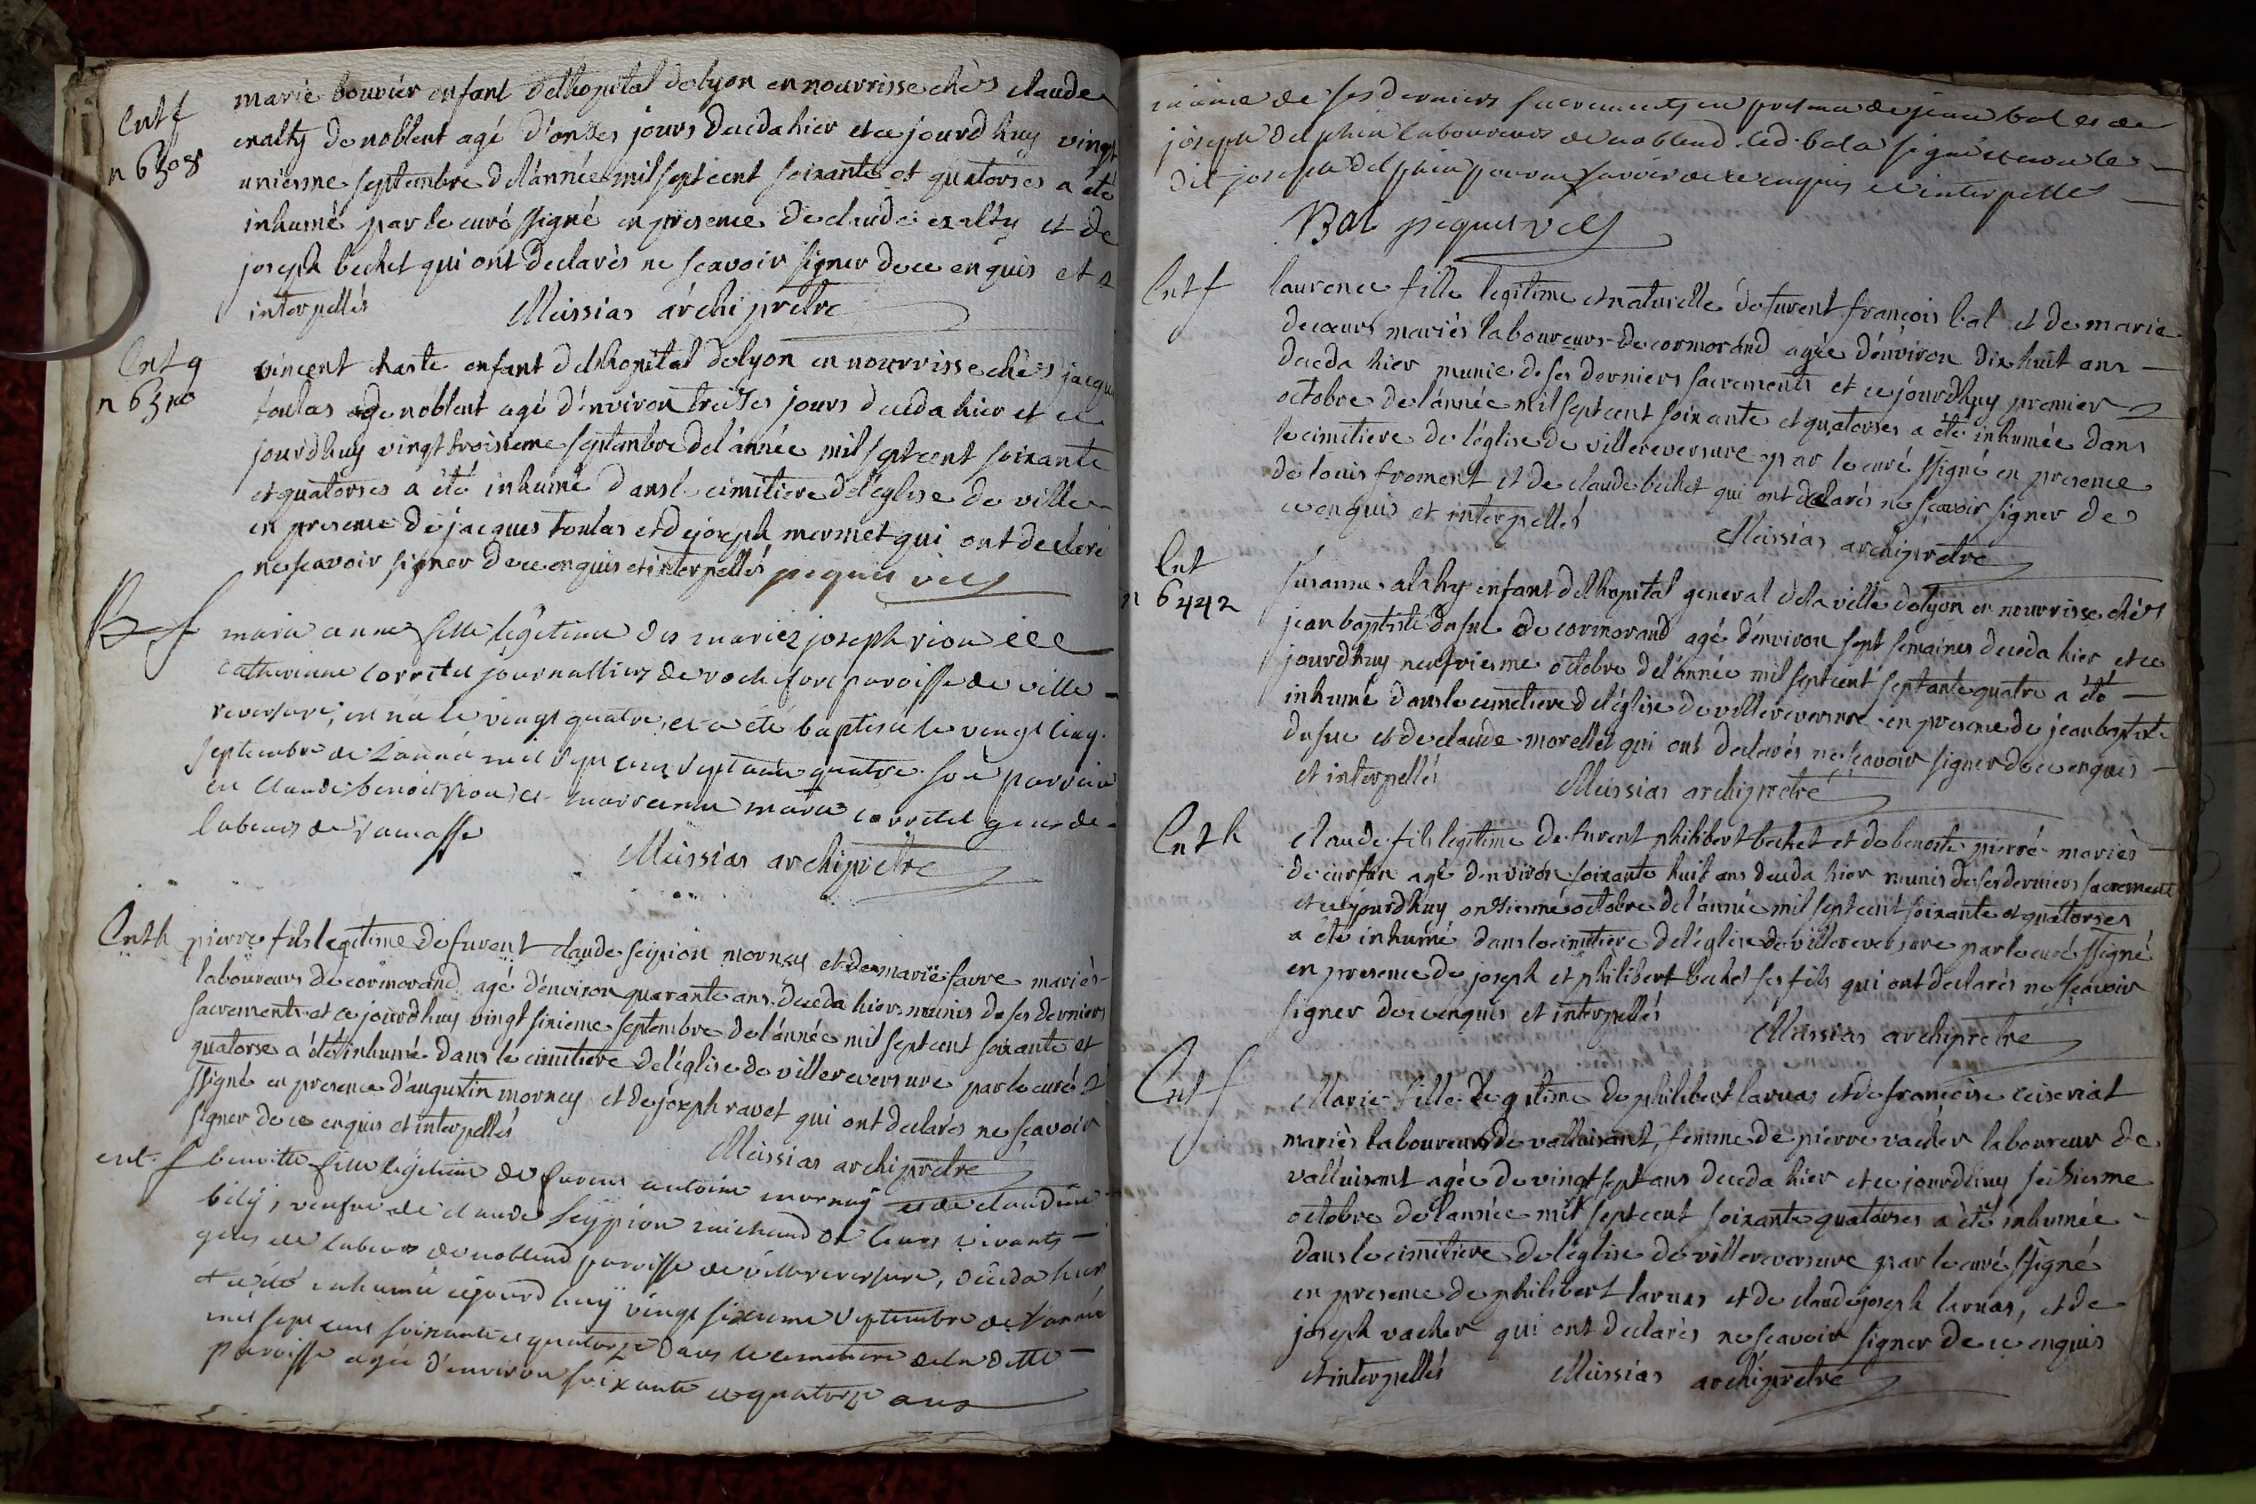 Ent f
n 6308
marie bouvier enfant delhopital delyon en nourrisse chès claude
exalty de noblent agé d'onses jours deceda hier et ce jourdhuy vingt
unieme septembre del'année mil sept cent soixante et quatorses a eté
inhumé par le curé ssigné en presence de claude exalty et de
joseph bechet qui ont declarès ne scavoir signer de ce enquis et
interpellés Meissias archiprêtre
Ent g
n 6310
vincent charte enfant delhopital delyon en nourrisse chès jacque
toulas de noblent agé d'environ treises jours deceda hier et ce
jourdhuy vingt troisieme septambre del'année mil sept cent soixante
et quatorses a été inhumé dans le cimitiere del'eglise de ville
en presence de jacques toulas et de joseph mermet qui ont decleré
ne scavoir signer de ce enquis et interpellés piquet vic
B f
marie anne fille légitime des mariez joseph viou et
catherinne corretel journalliers de rochefort paroisse de ville
reversure, est née le vingt quatre et a été baptisée le vingt cinq
septembre de l'année mil sept cens septante quatre. son parrain
est claude benoit viou et marrenne marie corretel gens de
labeurs de
Meissias archiprêtre
Ent h
pierre fils legitime de furent claude scipion mornay et de marie favre mariès
laboureurs de cormorand agé d'environ quarante ans deceda hier munis de ses derniers
sacrements et ce jourdhuy vingt sixieme septembre de l'année mil sept cent soixante et
quatorse a été inhumé dans le cimitiere de l'église de villereversure par le curé
ssigné en presence d'augustin mornay et de joseph ravet qui ont declarés ne scavoir
signer de ce enquis et interpellés
Meissias archiprêtre
ent. f
benoitte fille légitime de furent antoine mornay et de claudine
bily, veufve de claude scypion michaud de leurs vivants
gens de labeur de noblend paroisse de villereversure, decéda hier
et a été inhumée cejourd'huy vingt sixieme septembre de l'année
mil sept cent soixante et quatorze dans le cimetiere de la dette
paroisse agée d'environ soixante et quatorze ans
munie de ses derniers sacrements en presence de jean bal et de
joseph delphin laboureurs de noblend. led. bal a signé et non le
dit joseph delphin pour ne savoir de ce enquis et interpellé
Bal piquet vic
Ent f
laurence fille legitime et naturelle de furent françois bal et de marie
decoeurs mariès laboureurs de cormorand agée d'environ dix huit ans
deceda hier munie de ses derniers sacrements et ce jourdhuy premier
octobre de l'année mil sept cent soixante et quatorses a été inhumée dans
le cimitiere de l'église de villereversure par le curé ssigné en presence
de louis froment et de claude bechet qui ont declarés ne scavoir signer de
ce enquis et interpellés
Meissias archiprêtre
Ent
n 6442
susanne enfant delhopital general de la ville delyon en nourrisse chès
jean baptiste dufuc de cormorand agé d'environ sept semaines deceda hier et ce
jourdhuy neufviesme octobre de l'année mil sept cent septante quatre a été
inhumé dans le cimetiere de l'église de villereversure en presence de jean baptiste
dufuc et de claude morellet qui ont declarés ne scavoir signer de ce enquis
et interpellés Meissias archiprêtré
Ent h
claude fils legitime de furent philibert bechet et de benoite pierré mariès
de curfan agé d'environ soixante huit ans deceda hier munis de ses derniers sacrement
et ce jourdhuy onsiesme octobre de l'année mil sept cent soixante et quatorses
a été inhumé dans le cimitiere de l'église de villereversure par le curé ssigné
en presence de joseph et philibert bechet ses fils qui ont declarés ne scavoir
signer de ce enquis et interpellés
Meissias archiprêtre
Ent f
Marie fille legitime de philibert laruas et de francoise ceiseriat
mariès laboureurs de valluisant, femme de pierre vacher laboureur de
valluisant agée de vingt sept ans deceda hier et ce jourdhuy seisiesme
octobre de l'année mil sept cent soixante quatorses a été inhumée
dans le cimitiere de l'église de villereversure par le curé ssigné
en presence de philibert laruas et de claude joseph laruas, et de
joseph vacher qui ont declarès ne scavoir signer de ce enquis
et interpellés Meissias archiprêtre